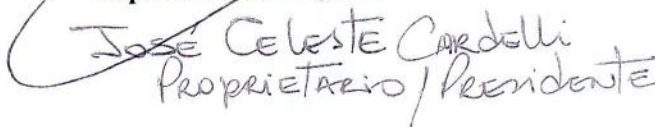 José Celeste Cardelli
Proprietario/Presidente